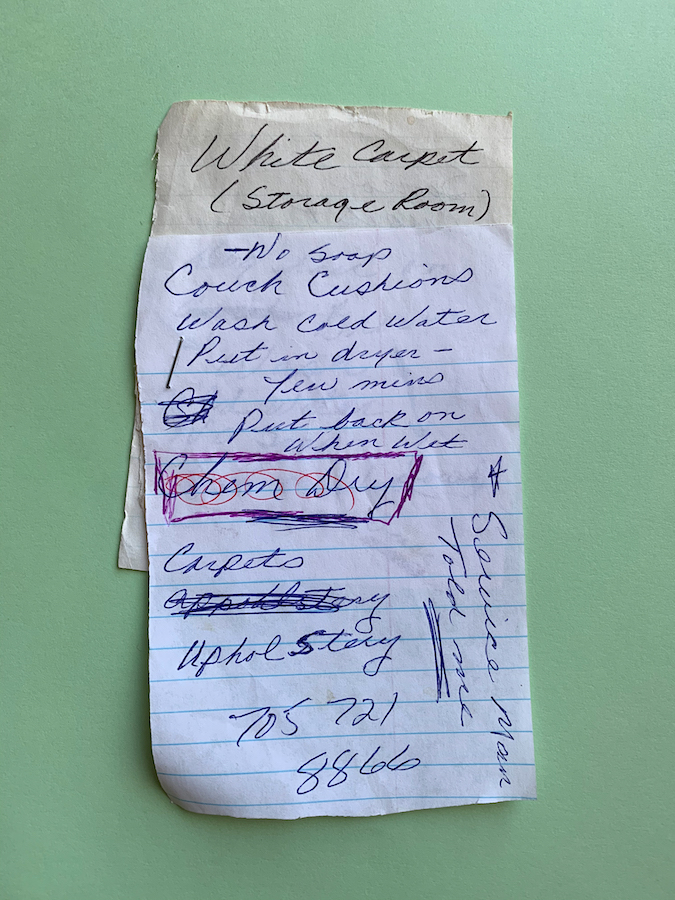 White Carpet
(Storage Room)
- No soap
Couch Cushions
Wash Cold Water
Put in dryer -
few mins
Put back on
When Wet
Chem Dry
Carpets
Upholstery
705 721
8866
* Service Man
Told me